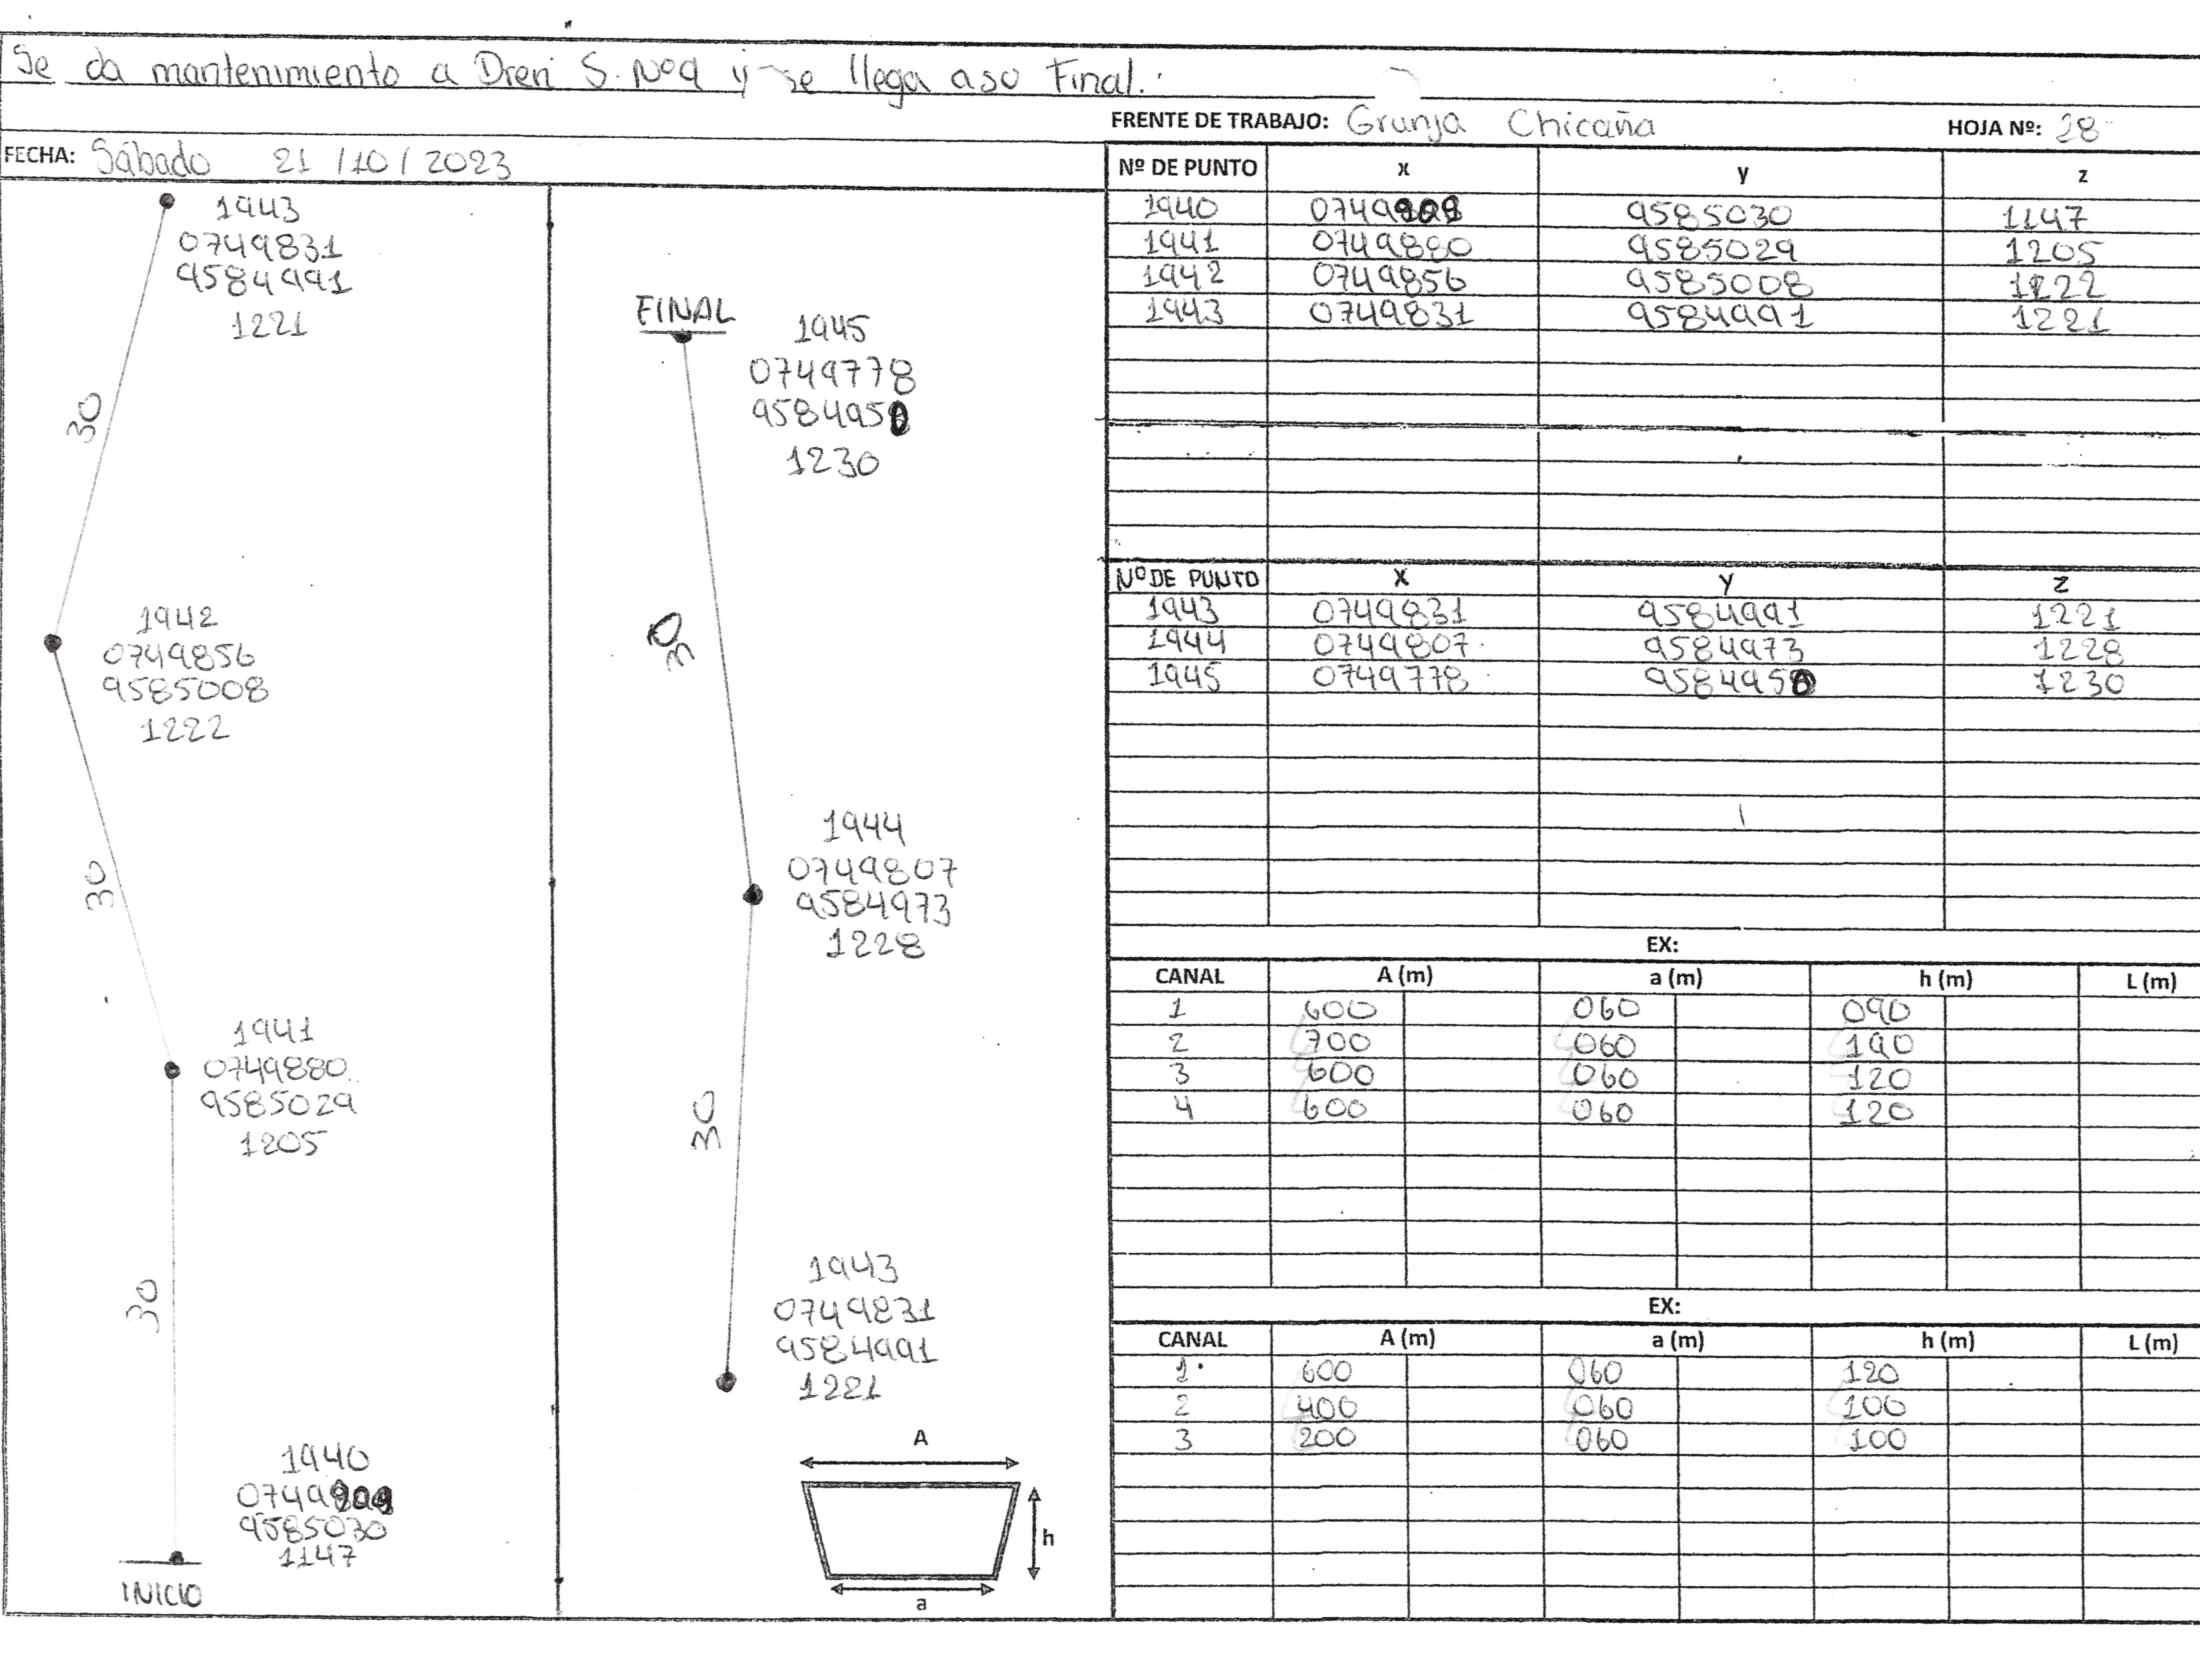 Se da mantenimiento a Dren S. Nº9 y se llega a su Final.
FRENTE DE TRABAJO: Granja Chicaña HOJA Nº: 28
FECHA: Sábado 21/10/2023
1943
0749831
9584991
1221
30
1942
0749856
9585008
1222
30
1941
0749880
9585029
1205
30
1940
9585030
1147
INICIO
FINAL
1945
0749778
9584950
1230
30
1944
0749807
9584973
1228
30
1943
0749831
9584991
1221
A
h
a
Nº DE PUNTO x y z
1940 9585030 1147
1941 0749880 9585029 1205
1942 0749856 9585008 1222
1943 0749831 9584991 1221
Nº DE PUNTO X Y Z
1943 0749831 9584991 1221
1944 0749807 9584973 1228
1945 0749778 9584950 1230
EX:
CANAL A (m) a (m) h (m) L (m)
1 600 060 090
2 700 060 190
3 600 060 120
4 600 060 120
EX:
CANAL A (m) a (m) h (m) L (m)
1 600 060 120
2 400 060 100
3 200 060 100